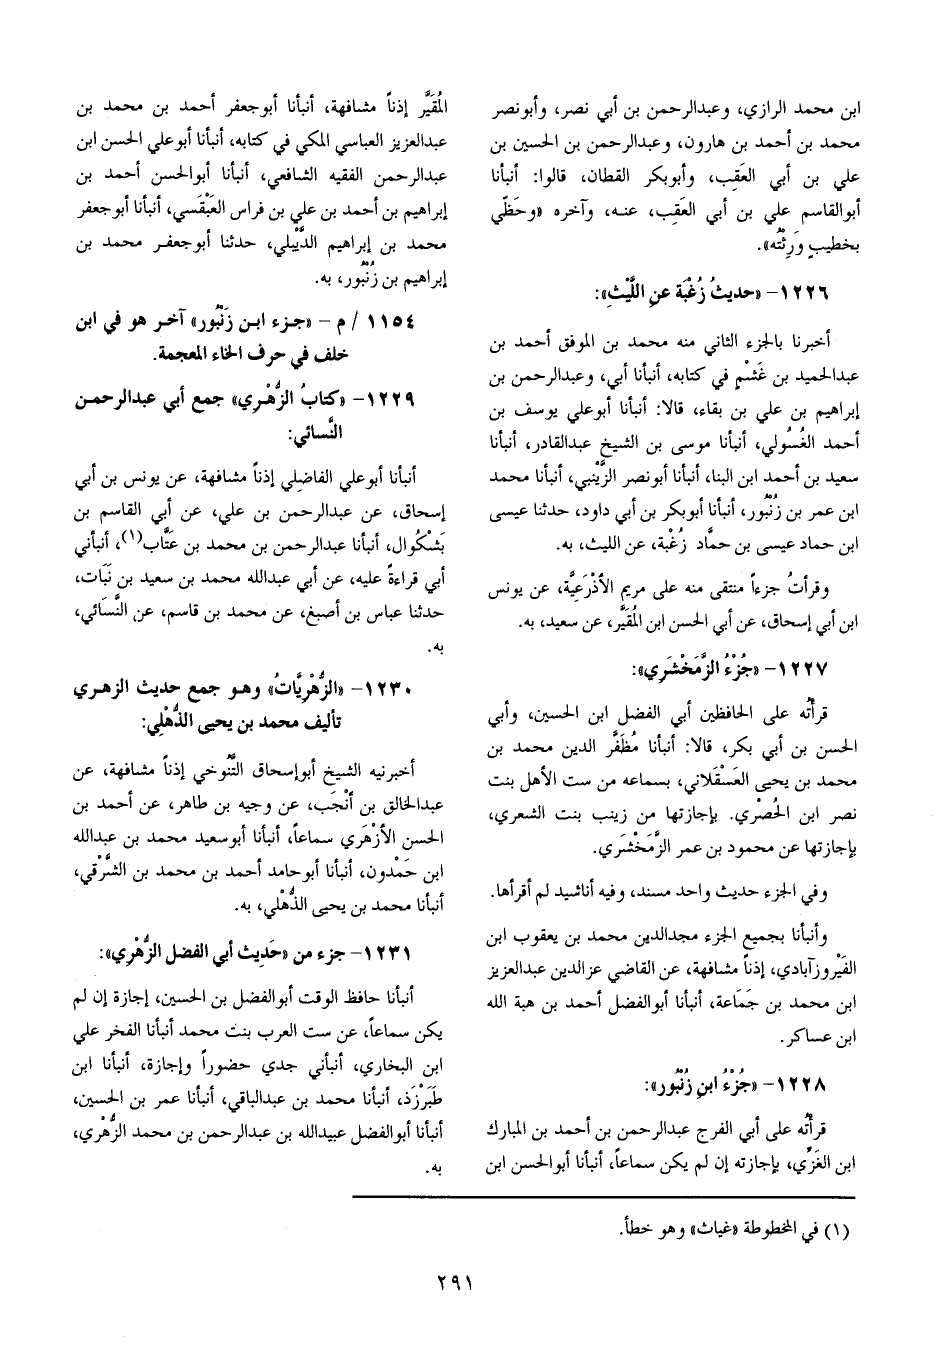 ابن محمد الرازي، وعبدالرحمن بن أبي نصر، وأبونصر
محمد بن أحمد بن هارون، وعبدالرحمن بن الحسين بن
علي بن أبي العَقِب، وأبوبكر القطان، قالوا: أنبأنا
أبوالقاسم علي بن أبي العَقِب، عنه، وآخره «وحَظِّي
بخطيبٍ وَرِثْتُه».
١٢٢٦- «حديثُ زُغْبَة عنِ اللَّيْثِ»:
أخبرنا بالجزء الثاني منه محمد بن الموفق أحمد بن
عبدالحميد بن غَشْمٍ في كتابه، أنبأنا أبي، وعبدالرحمن بن
إبراهيم بن علي بن بقاء، قالا: أنبأنا أبوعلي يوسف بن
أحمد الغُسُولي، أنبأنا موسى بن الشيخ عبدالقادر، أنبأنا
سعيد بن أحمد ابن البنا، أنبأنا أبونصر الزَّيْنبي، أنبأنا محمد
ابن عمر بن زُنْبُور، أنبأنا أبوبكر بن أبي داود، حدثنا عيسى
ابن حماد عيسى بن حمَّاد زُغْبة، عن الليث، به.
وقرأتُ جزءاً منتقى منه على مريم الأَذْرَعِيَّة، عن يونس
ابن أبي إسحاق، عن أبي الحسن ابن المُقَيَّر، عن سعيد، به.
١٢٢٧- «جُزْءُ الزَّمَخْشَرِي»:
قرأتُه على الحافظين أبي الفضل ابن الحسين، وأبي
الحسن بن أبي بكر، قالا: أنبأنا مُظَفَّر الدين محمد بن
محمد بن يحيى العَسْقَلاني، بسماعه من ست الأهل بنت
نصر ابن الحُصْري. بإجازتها من زينب بنت الشعري،
بإجازتها عن محمود بن عمر الزَّمَخْشَري.
وفي الجزء حديث واحد مسند، وفيه أناشيد لم أقرأها.
وأنبأنا بجميع الجزء مجدالدين محمد بن يعقوب ابن
الفَيْروزآبادي، إذناً مشافهة، عن القاضي عزالدين عبدالعزيز
ابن محمد بن جَمَاعة، أنبأنا أبوالفضل أحمد بن هبة الله
ابن عساكر.
١٢٢٨- «جُزْءُ ابنِ زُنْبُور»:
قرأتُه على أبي الفرج عبدالرحمن بن أحمد بن المبارك
ابن الغَزِّي، بإجازته إن لم يكن سماعاً، أنبأنا أبوالحسن ابن
المُقَيَّر إذناً مشافهة، أنبأنا أبوجعفر أحمد بن محمد بن
عبدالعزيز العباسي المكي في كتابه، أنبأنا أبوعلي الحسن ابن
عبدالرحمن الفقيه الشافعي، أنبأنا أبوالحسن أحمد بن
إبراهيم بن أحمد بن علي بن فراس العَبْقَسي، أنبأنا أبوجعفر
محمد بن إبراهيم الدَّيْبلي، حدثنا أبوجعفر محمد بن
إبراهيم بن زُنْبُور، به.
١١٥٤ / م – «جزء ابن زَنْبُور» آخر هو في ابن
خلف في حرف الخاء المعجمة.
١٢٢٩- «كتابُ الزُّهْرِي» جمع أبي عبدالرحمن
النَّسائي:
أنبأنا أبوعلي الفاضلي إذناً مشافهة، عن يونس بن أبي
إسحاق، عن عبدالرحمن بن علي، عن أبي القاسم بن
بَشْكُوال، أنبأنا عبدالرحمن بن محمد بن عَتَّاب(١)، أنبأني
أبي قراءةً عليه، عن أبي عبدالله محمد بن سعيد بن نَبَات،
حدثنا عباس بن أصبغ، عن محمد بن قاسم، عن النَّسَائي،
به.
١٢٣٠- «الزُّهْرِيَّاتُ» وهو جمع حديث الزهري
تأليف محمد بن يحيى الذُّهْلِي:
أخبرنيه الشيخ أبوإسحاق التَّنُوخي إذناً مشافهة، عن
عبدالخالق بن أَنْجَب، عن وجيه بن طاهر، عن أحمد بن
الحسن الأَزْهَري سماعاً، أنبأنا أبوسعيد محمد بن عبدالله
ابن حَمْدون، أنبأنا أبوحامد أحمد بن محمد بن الشَّرْقي،
أنبأنا محمد بن يحيى الذُّهْلي، به.
١٢٣١- جزء من «حَدِيث أبي الفضل الزُّهْرِي»:
أنبأنا حافظ الوقت أبوالفضل بن الحسين، إجازة إن لم
يكن سماعاً، عن ست العرب بنت محمد أنبأنا الفخر علي
ابن البخاري، أنبأني جدي حضوراً وإجازة، أنبأنا ابن
طَبَرْزَذ، أنبأنا محمد بن عبدالباقي، أنبأنا عمر بن الحسين،
أنبأنا أبوالفضل عبيدالله بن عبدالرحمن بن محمد الزُّهْري،
به.
(١) في المخطوطة «غياث» وهو خطأ.
٢٩١